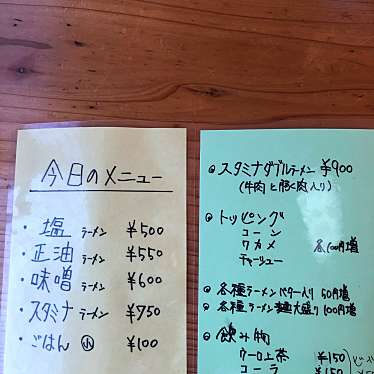 今日のメニュー
・塩ラーメン ¥500
・正油ラーメン ¥550
・味噌ラーメン ¥600
・スタミナラーメン ¥750
・ごはん 小 ¥100
◎スタミナダブルラーメン ¥900
(牛肉と豚肉入り)
◎トッピング
コーン
ワカメ 各100円増
チャーシュー
◎各種ラーメンバター入り 50円増
◎各種ラーメン麺大盛り 100円増
◎飲み物
ウーロン茶 ¥150
コーラ ¥150